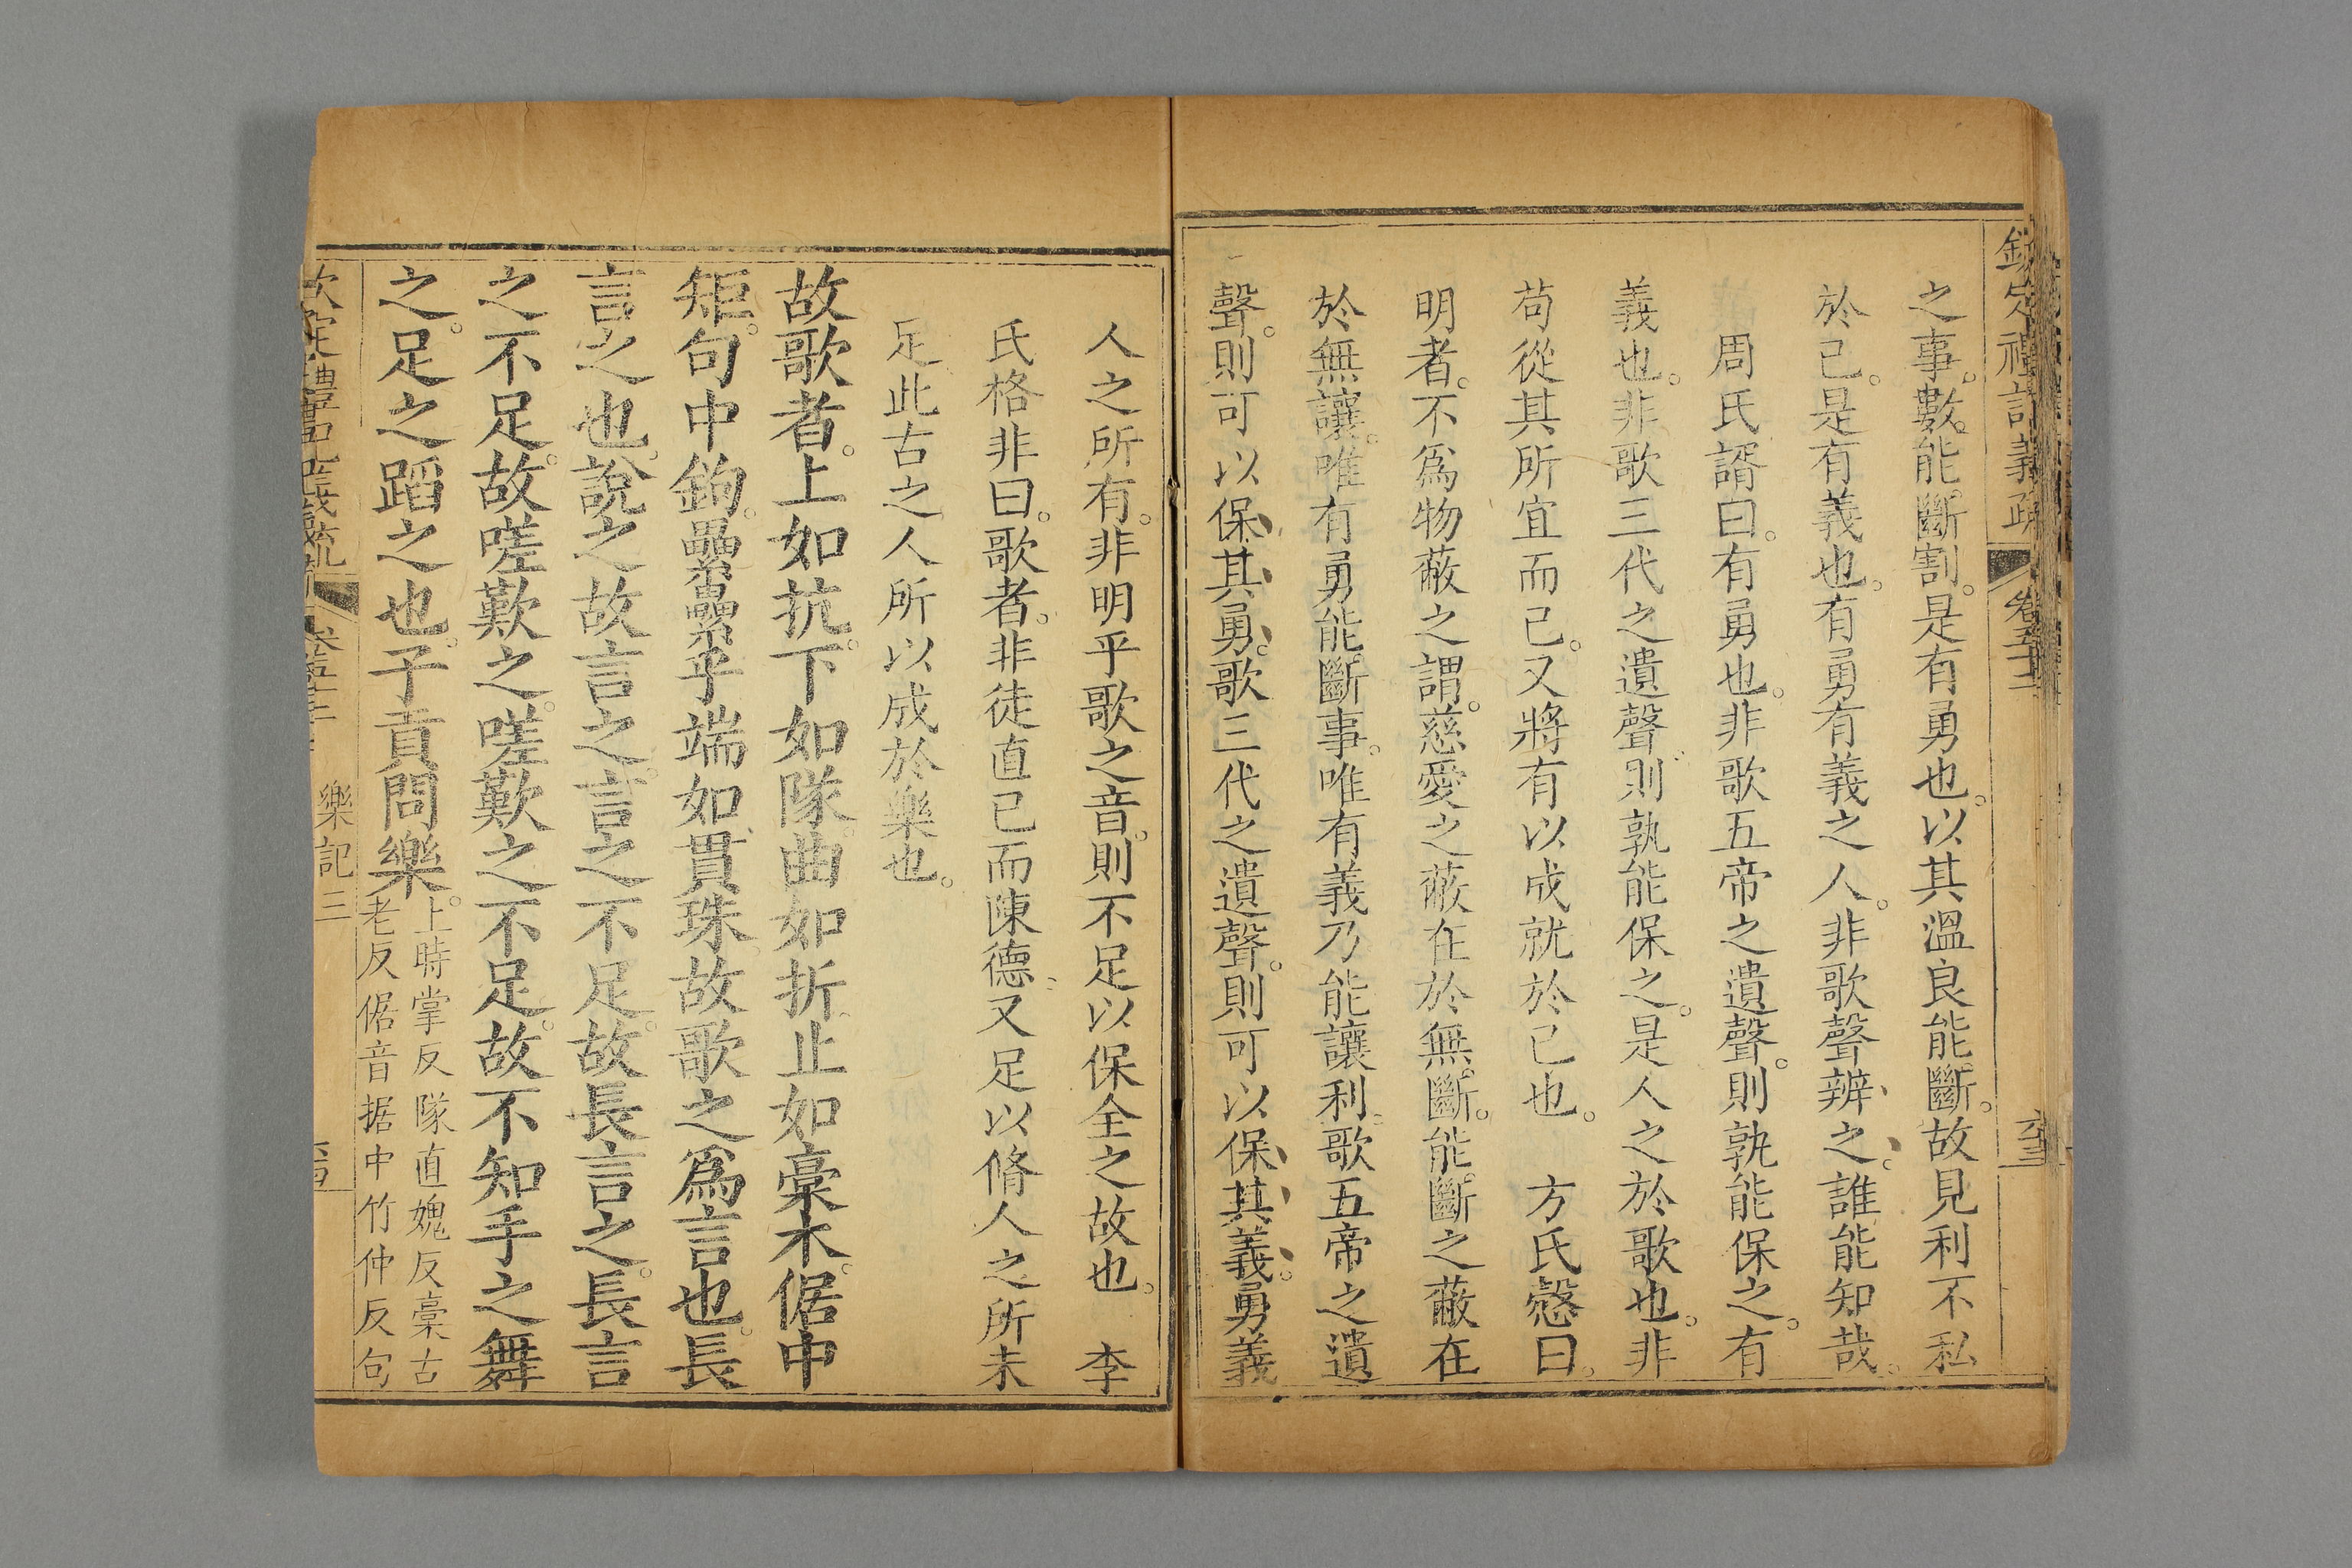 欽定禮記義疏 卷五十三
之事。數能斷割。是有勇也。以其溫良能斷。故見利不私
於己。是有義也。有勇有義之人。非歌聲辨之。誰能知哉。
周氏諝曰。有勇也。非歌五帝之遺聲。則孰能保之。有
義也。非歌三代之遺聲。則孰能保之。是人之於歌也。非
苟從其所宜而已。又將有以成就於己也。 方氏慤曰。
明者。不爲物蔽之謂。慈愛之蔽在於無斷。能斷之蔽在
於無讓。唯有勇能斷事。唯有義乃能讓利。歌五帝之遺
聲。則可以保其勇。歌三代之遺聲。則可以保其義。勇義
人之所有。非明乎歌之音。則不足以保全之故也。 李
氏格非曰。歌者。非徒直己而陳德。又足以脩人之所未
足。此古之人所以成於樂也。
故歌者。上如抗。下如隊。曲如折。止如槀木。倨中
矩。句中鉤。纍纍乎端如貫珠。故歌之爲言也。長
言之也。說之故言之。言之不足。故長言之。長言
之不足。故嗟歎之。嗟歎之不足。故不知手之舞
之。足之蹈之也。子貢問樂。
上時掌反隊直媿反槀古
老反倨音据中竹仲反句
欽定禮記義疏 卷五十三 樂記三